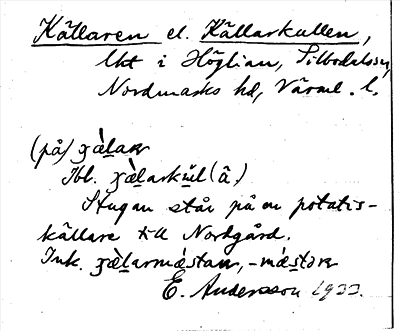 Källaren el. Källarkullen,
lht i Höglian, Silbodals sn,
Nordmarks hd, Värml. l.
(på) ʒὰḻan
Ibl. ʒὰḻarkul (â.)
Stugan står på en potatis-
källare till Nordgård.
Ink. ʒὰḻarmǽstan, -mǽstən
E. Andersson 1933.